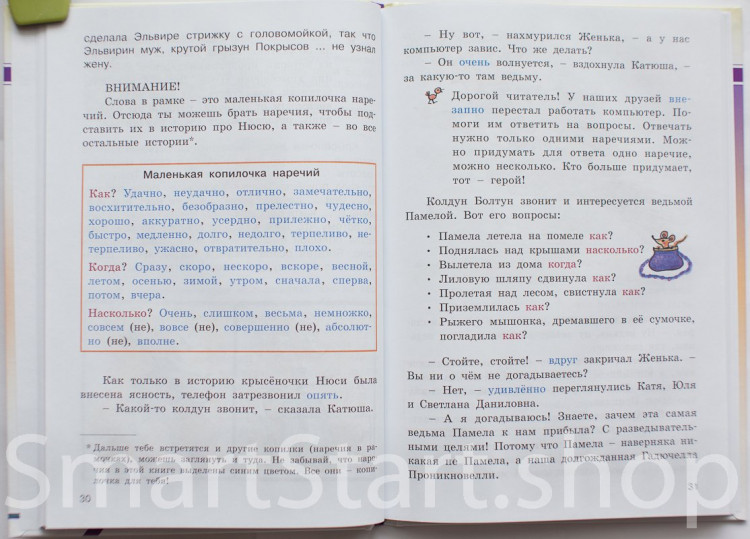 сделала Эльвире стрижку с головомойкой, так что
Эльвирин муж, крутой грызун Покрысов ... не узнал
жену.
ВНИМАНИЕ!
Слова в рамке – это маленькая копилочка наре-
чий. Отсюда ты можешь брать наречия, чтобы под-
ставить их в историю про Нюсю, а также – во все
остальные истории*.
Маленькая копилочка наречий
Как? Удачно, неудачно, отлично, замечательно,
восхитительно, безобразно, прелестно, чудесно,
хорошо, аккуратно, усердно, прилежно, чётко,
быстро, медленно, долго, недолго, терпеливо, не-
терпеливо, ужасно, отвратительно, плохо.
Когда? Сразу, скоро, нескоро, вскоре, весной,
летом, осенью, зимой, утром, сначала, сперва,
потом, вчера.
Насколько? Очень, слишком, весьма, немножко,
совсем (не), вовсе (не), совершенно (не), абсолют-
но (не), вполне.
Как только в историю крысёночки Нюси была
внесена ясность, телефон затрезвонил опять.
– Какой-то колдун звонит, – сказала Катюша.
* Дальше тебе встретятся и другие копилки (наречия в ра-
мочках), можешь заглянуть и туда. Не забывай, что наре-
чия в этой книге выделены синим цветом. Все они – копи-
лочка для тебя!
30
– Ну вот, – нахмурился Женька, – а у нас
компьютер завис. Что же делать?
– Он очень волнуется, – вздохнула Катюша, –
за какую-то там ведьму.
Дорогой читатель! У наших друзей вне-
запно перестал работать компьютер. По-
моги им ответить на вопросы. Отвечать
нужно только одними наречиями. Мож-
но придумать для ответа одно наречие,
можно несколько. Кто больше придумает,
тот – герой!
Колдун Болтун звонит и интересуется ведьмой
Памелой. Вот его вопросы:
• Памела летела на помеле как?
• Поднялась над крышами насколько?
• Вылетела из дома когда?
• Лиловую шляпу сдвинула как?
• Пролетая над лесом, свистнула как?
• Приземлилась как?
• Рыжего мышонка, дремавшего в её сумочке,
погладила как?
– Стойте, стойте! – вдруг закричал Женька. –
Вы ни о чём не догадываетесь?
– Нет, – удивлённо переглянулись Катя, Юля
и Светлана Даниловна.
– А я догадываюсь! Знаете, зачем эта самая
ведьма Памела к нам прибыла? С разведыватель-
ными целями! Потому что Памела – наверняка ни-
какая не Памела, а наша долгожданная Галючелла
Проникновелли.
31
SmartStart.shop